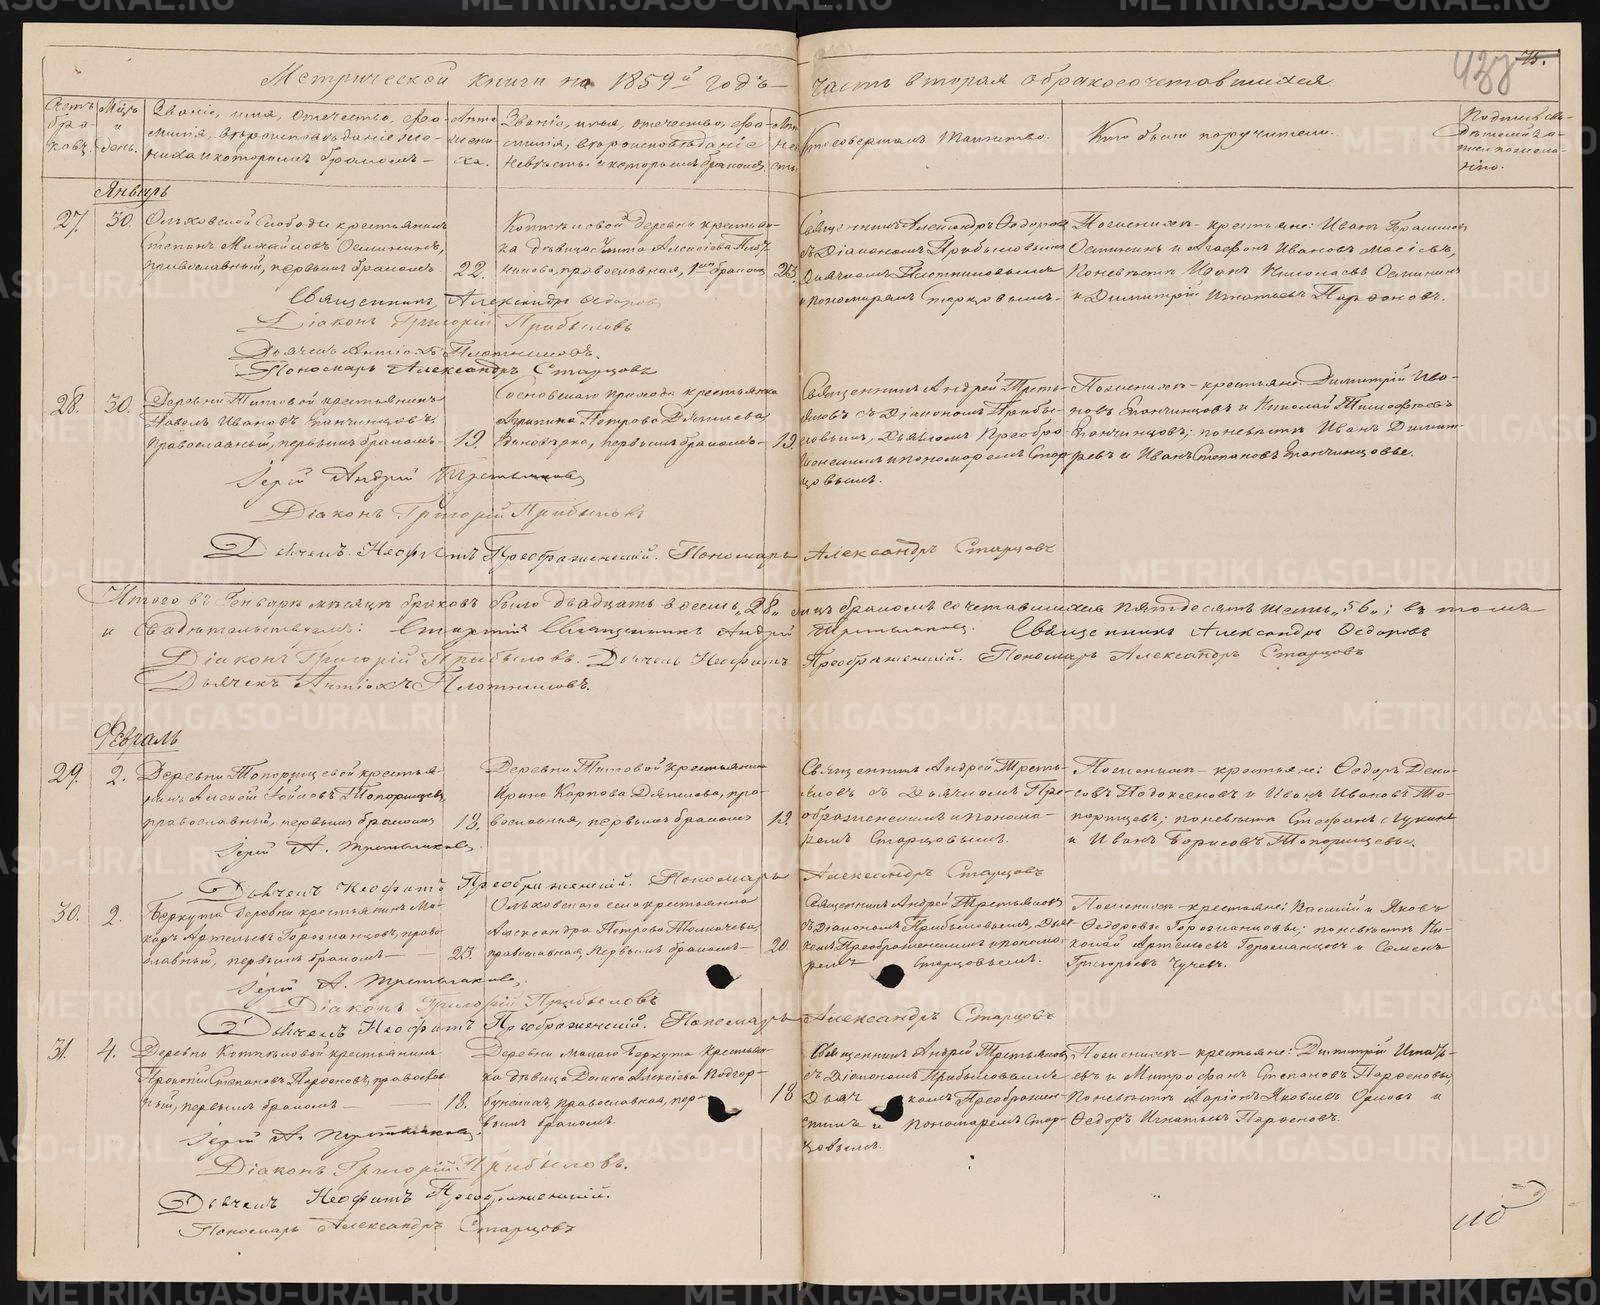 Метрической книги на 1859й годъ часть вторая о бракосочетавшихся
438 75.
Счетъ браковъ.
Мѣсяцъ и день.
Званіе, имя, отечество, фамилія, вѣроисповѣданіе жениха и которымъ бракомъ
Лѣта жениха.
Званіе, имя, отечество, фамилія, вѣроисповѣданіе невѣсты и которымъ бракомъ
Кто совершалъ таинство.
Кто были поручители.
Январь
27. 30. Ольховской Слободы крестьянинъ
Степанъ Михайловъ Осмининъ,
православный, первымъ бракомъ. 22.
деревни крестьян-
ка дѣвица Алексіева
православная, 1мъ бракомъ 23.
Священникъ Александръ Ѳедоровъ
съ Діакономъ Прибыловымъ
Дьячкомъ Плотниковымъ
и Пономаремъ Старцовымъ.
По женихѣ - крестьяне: Иванъ
Осминин и Агафонъ Ивановъ
По невѣстѣ Иванъ Николаевъ Осминин
и Димитрій Игнатьевъ Парѳеновъ.
Священникъ Александръ Ѳедоровъ
Діаконъ Григорій Прибыловъ
Дьячекъ Антіохъ Плотниковъ.
Пономарь Александръ Старцовъ
28. 30. Деревни Титовой крестьянинъ
Павелъ Ивановъ Епанчинцовъ
Православный, первымъ бракомъ 19.
Сосновскаго прихода крестьянка
Агрипина Петрова
Единовѣрка, первымъ бракомъ 19.
Священникъ Андрей Треть-
яковъ съ Діакономъ Прибы-
ловымъ, Дьячкомъ Преобра-
женскимъ и пономаремъ Стар-
цовымъ.
По женихѣ - крестьяне: Димитрій Ива-
новъ Епанчинцовъ и Николай Тимофѣевъ
Епанчинцовъ; по невѣстѣ Иванъ Димит-
ревъ и Иванъ Степановъ Епанчинцовы.
Іерей Андрей Третьяковъ
Діаконъ Григорій Прибыловъ
Дьячекъ Неофитъ Преображенскій. Пономарь Александръ Старцовъ
Итого въ Генварѣ мѣсяцѣ браковъ было двадцать восемь „28„ лицъ бракомъ сочетавшихся пятдесятъ шесть „56„; въ томъ
и Свидѣтельствуемъ: Старшій Священникъ Андрей Третьяковъ. Священникъ Александръ Ѳедоровъ
Діаконъ Григорій Прибыловъ. Дьячекъ Неофитъ Преображенскій. Пономарь Александръ Старцовъ
Дьячекъ Антіохъ Плотниковъ.
Февраль
29. 2. Деревни Топорищевой крестья-
нинъ Алексій Топорищевъ
православный, первымъ бракомъ 18.
Деревни Титовой крестьянка
Ирина Карпова пра-
вославная, первымъ бракомъ 19.
Священникъ Андрей Треть-
яковъ съ Дьячкомъ Пре-
ображенскимъ и понома-
ремъ Старцовымъ.
По женихѣ - крестьяне: Ѳедоръ
и Иванъ Ивановъ То-
порищевъ; по невѣстѣ Стефанъ
и Иванъ Борисовъ Топорищевы.
Іерей А. Третьяковъ.
Дьячекъ Неофитъ Преображенскій. Пономарь Александръ Старцовъ
30. 2. Беркута деревни крестьянинъ Ма-
каръ Артемьевъ право-
славный, первымъ бракомъ 23.
Ольховскаго села крестьянка
Александра Петрова Толмачева,
православная, первымъ бракомъ 20.
Священникъ Андрей Третьяковъ
съ Діакономъ Прибыловымъ, Дьяч-
комъ Преображенскимъ и понома-
ремъ Старцовымъ.
По женихѣ - крестьяне: Василій и Яковъ
Ѳедоровы по невѣстѣ Ни-
колай Артемьевъ и Семенъ
Григорьевъ Чучевъ.
Іерей А. Третьяковъ.
Діаконъ Григорій Прибыловъ
Дьячекъ Неофитъ Преображенскій. Пономарь Александръ Старцовъ
31. 4. Деревни крестьянинъ
Прокопій Степановъ Парѳеновъ, православ-
ный, первымъ бракомъ 18.
Деревни Малаго Беркута крестьян-
ка дѣвица Домна Алексіева
православная, пер-
вымъ бракомъ. 18
Священникъ Андрей Третьяковъ
съ Діакономъ Прибыловымъ
Дьячкомъ Преображен-
скимъ и Пономаремъ Стар-
цовымъ.
По женихѣ - крестьяне: Димитрій Игнать-
евъ и Митрофанъ Степановъ Парѳеновы,
По невѣстѣ Ларіонъ Яковлевъ и
Ѳедоръ Игнатьевъ Парѳеновъ.
Іерей А. Третьяковъ.
Діаконъ Григорій Прибыловъ.
Дьячекъ Неофитъ Преображенскій.
Пономарь Александръ Старцовъ
METRIKI.GASO-URAL.RU